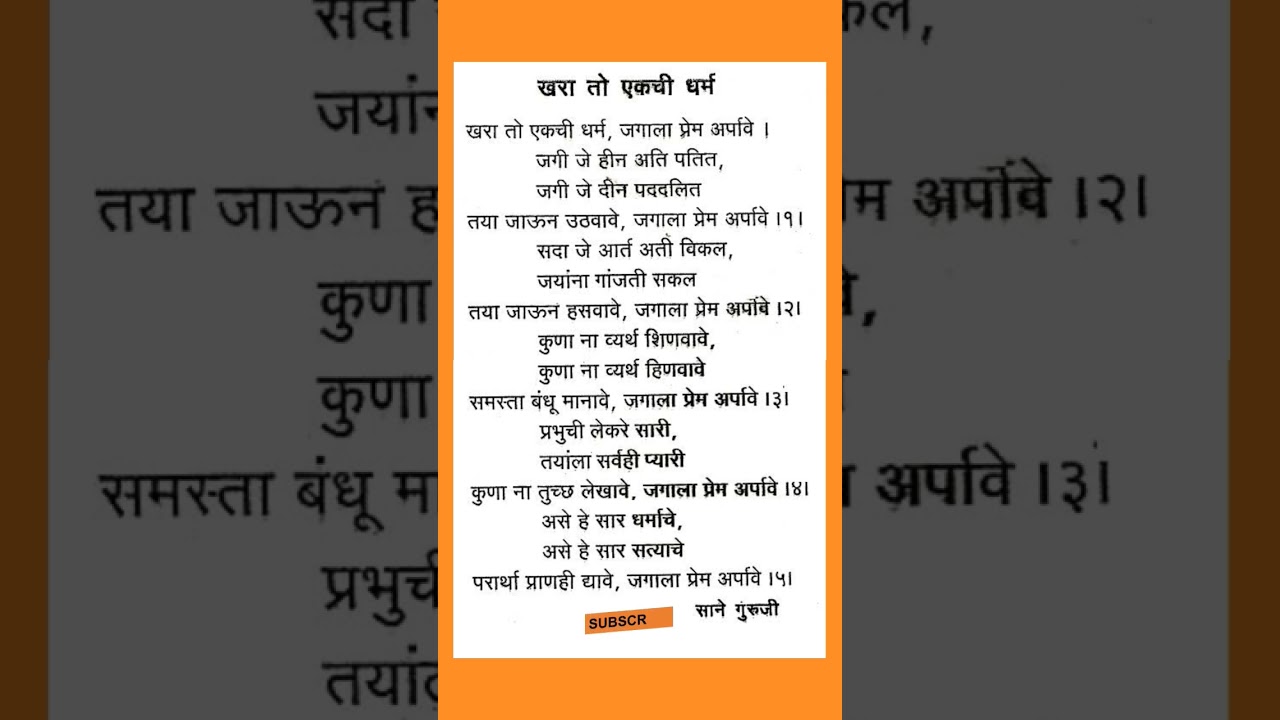 खरा तो एकची धर्म
खरा तो एकची धर्म, जगाला प्रेम अर्पावे ।
जगी जे हीन अति पतित,
जगी जे दीन पददलित
तया जाऊन उठवावे, जगाला प्रेम अर्पावे ।१।
सदा जे आर्त अती विकल,
जयांना गांजती सकल
तया जाऊन हसवावे, जगाला प्रेम अर्पावे ।२।
कुणा ना व्यर्थ शिणवावे,
कुणा ना व्यर्थ हिणवावे
समस्ता बंधू मानावे, जगाला प्रेम अर्पावे ।३।
प्रभुची लेकरे सारी,
तयांला सर्वही प्यारी
कुणा ना तुच्छ लेखावे, जगाला प्रेम अर्पावे ।४।
असे हे सार धर्माचे,
असे हे सार सत्याचे
परार्था प्राणही द्यावे, जगाला प्रेम अर्पावे ।५।
साने गुरुजी
SUBSCR